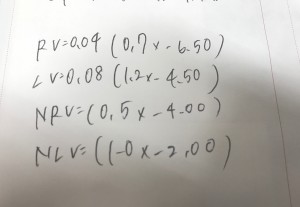 RV=0.04 (0,7x-6.50)
LV=0,08 (1.2x-4.50)
NRV=(0,5x-4.00)
NLV=((-0x-2,00)